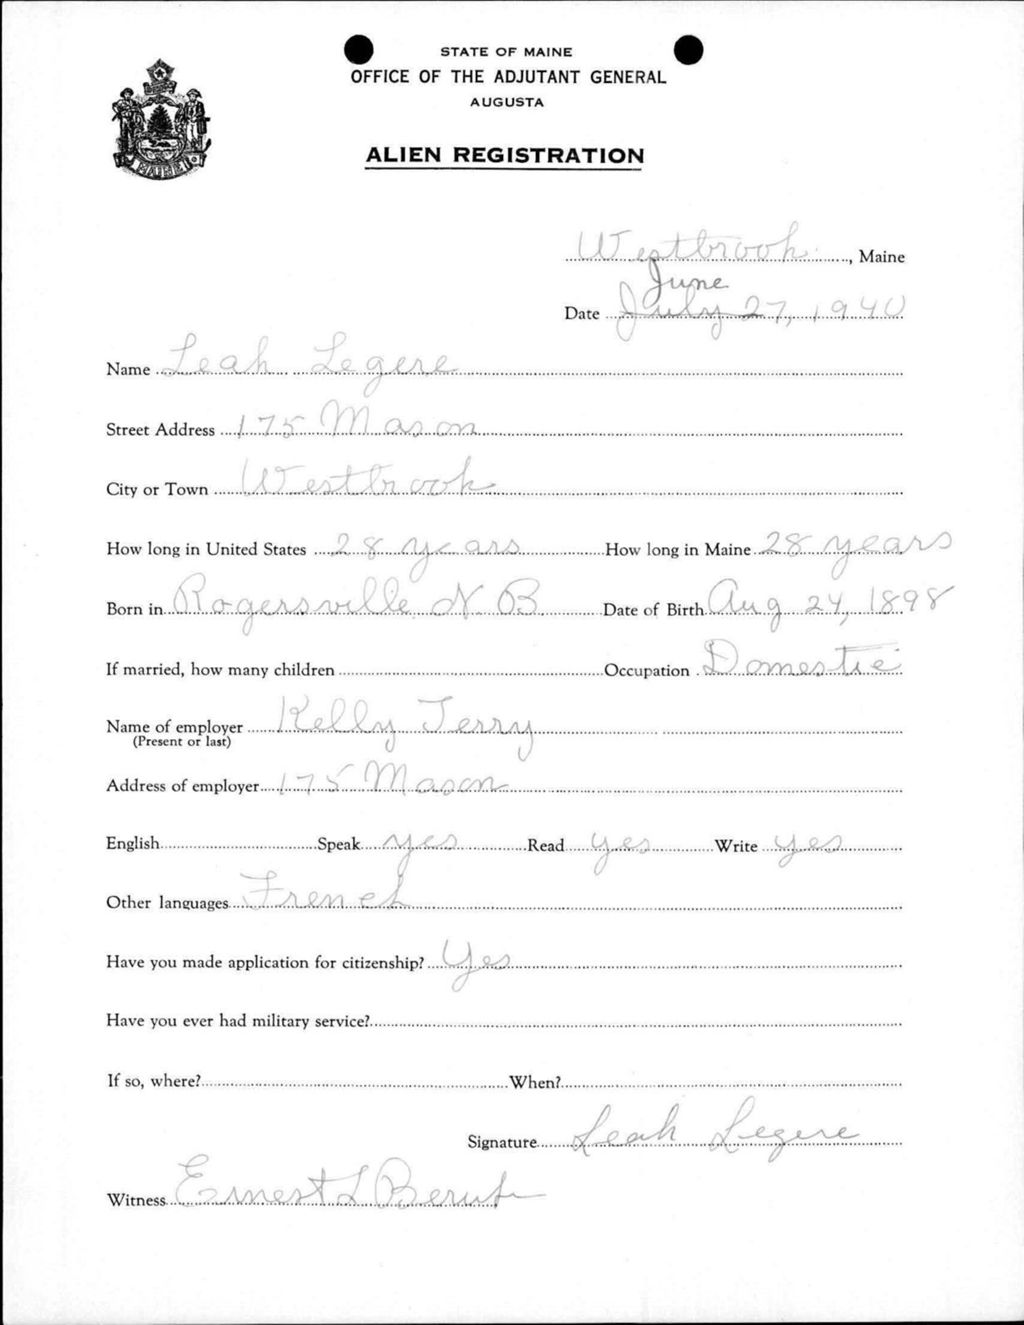 STATE OF MAINE
OFFICE OF THE ADJUTANT GENERAL
AUGUSTA
ALIEN REGISTRATION
Westbrook, Maine
June
Date July 27, 1940
Name Leah Legere
Street Address 175 Mason
City or Town Westbrook
How long in United States 28 years How long in Maine 28 years
Born in Rogersville N. B. Date of Birth Aug 24, 1898
If married, how many children Occupation Domestic
Name of employer Kelly Terry
(Present or last)
Address of employer 175 Mason
English Speak yes Read yes Write yes
Other languages French
Have you made application for citizenship? Yes
Have you ever had military service?
If so, where? When?
Signature Leah Legere
Witness Ernest L